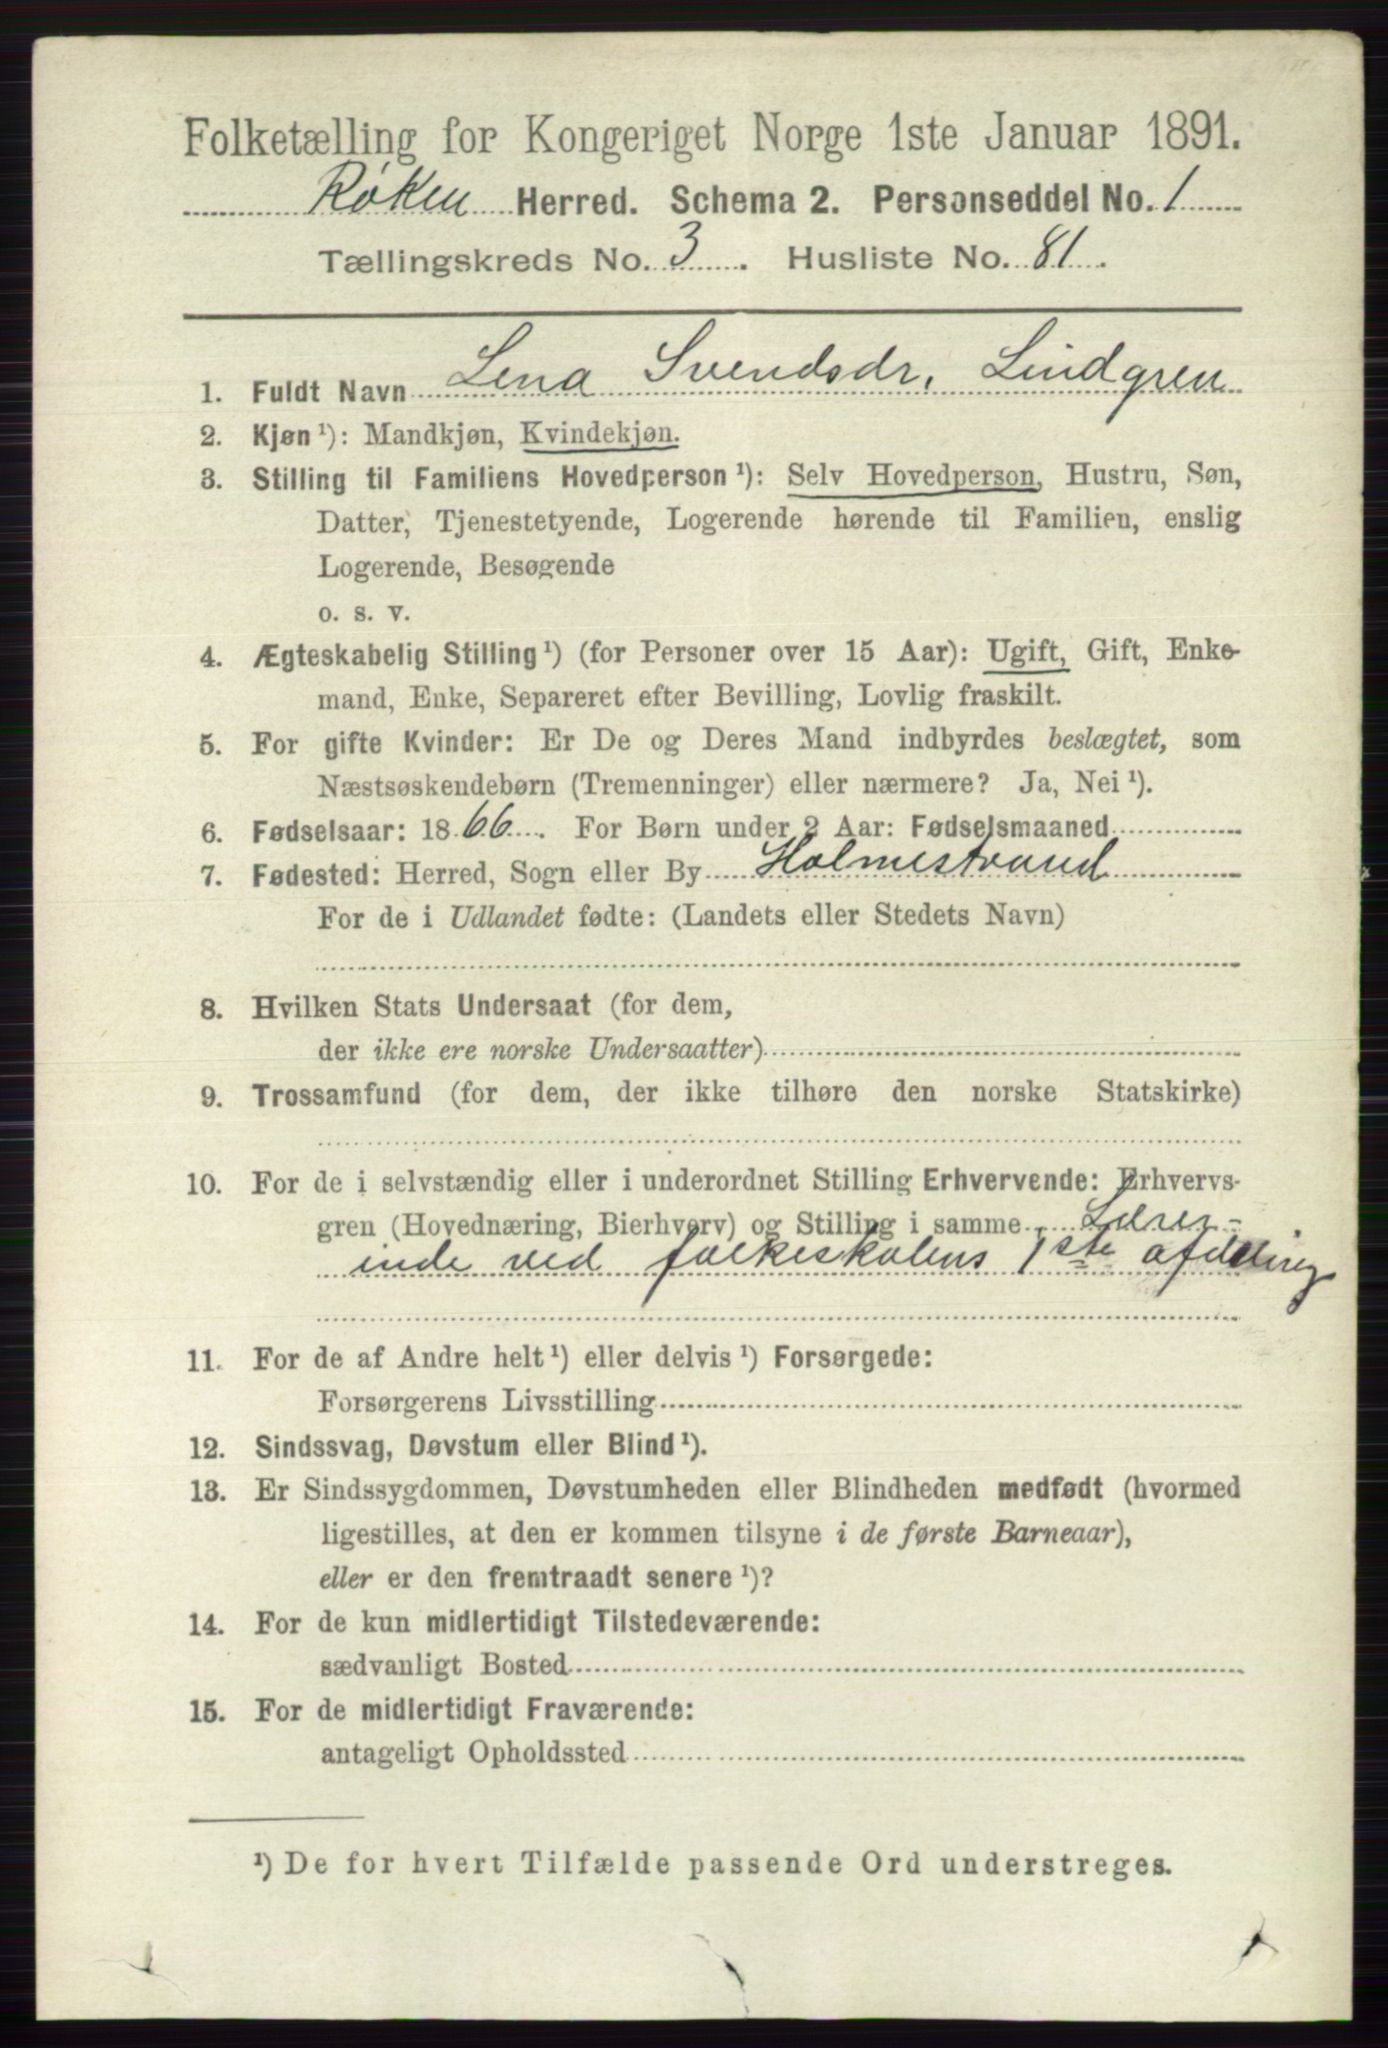 Folketælling for Kongeriget Norge 1ste Januar 1891.
Røken Herred. Schema 2. Personseddel No. 1
Tællingskreds No. 3. Husliste No. 81.
1. Fuldt Navn Lena Svendsdr. Lindgren
2. Kjøn ¹): Mandkjøn, Kvindekjøn.
3. Stilling til Familiens Hovedperson ¹): Selv Hovedperson, Hustru, Søn,
Datter, Tjenestetyende, Logerende hørende til Familien, enslig
Logerende, Besøgende
o. s. v.
4. Ægteskabelig Stilling ¹) (for Personer over 15 Aar): Ugift, Gift, Enke-
mand, Enke, Separeret efter Bevilling, Lovlig fraskilt.
5. For gifte Kvinder: Er De og Deres Mand indbyrdes beslægtet, som
Næstsøskendebørn (Tremenninger) eller nærmere? Ja, Nei ¹).
6. Fødselsaar: 1866. For Børn under 2 Aar: Fødselsmaaned
7. Fødested: Herred, Sogn eller By Holmestrand
For de i Udlandet fødte: (Landets eller Stedets Navn)
8. Hvilken Stats Undersaat (for dem,
der ikke ere norske Undersaatter)
9. Trossamfund (for dem, der ikke tilhøre den norske Statskirke)
10. For de i selvstændig eller i underordnet Stilling Erhvervende: Erhvervs-
gren (Hovednæring, Bierhverv) og Stilling i samme Lærer-
inde ved folkeskolens 1ste afdeling
11. For de af Andre helt ¹) eller delvis ¹) Forsørgede:
Forsørgerens Livsstilling
12. Sindssvag, Døvstum eller Blind ¹).
13. Er Sindssygdommen, Døvstumheden eller Blindheden medfødt (hvormed
ligestilles, at den er kommen tilsyne i de første Barneaar),
eller er den fremtraadt senere ¹)?
14. For de kun midlertidigt Tilstedeværende:
sædvanligt Bosted
15. For de midlertidigt Fraværende:
antageligt Opholdssted
¹) De for hvert Tilfælde passende Ord understreges.